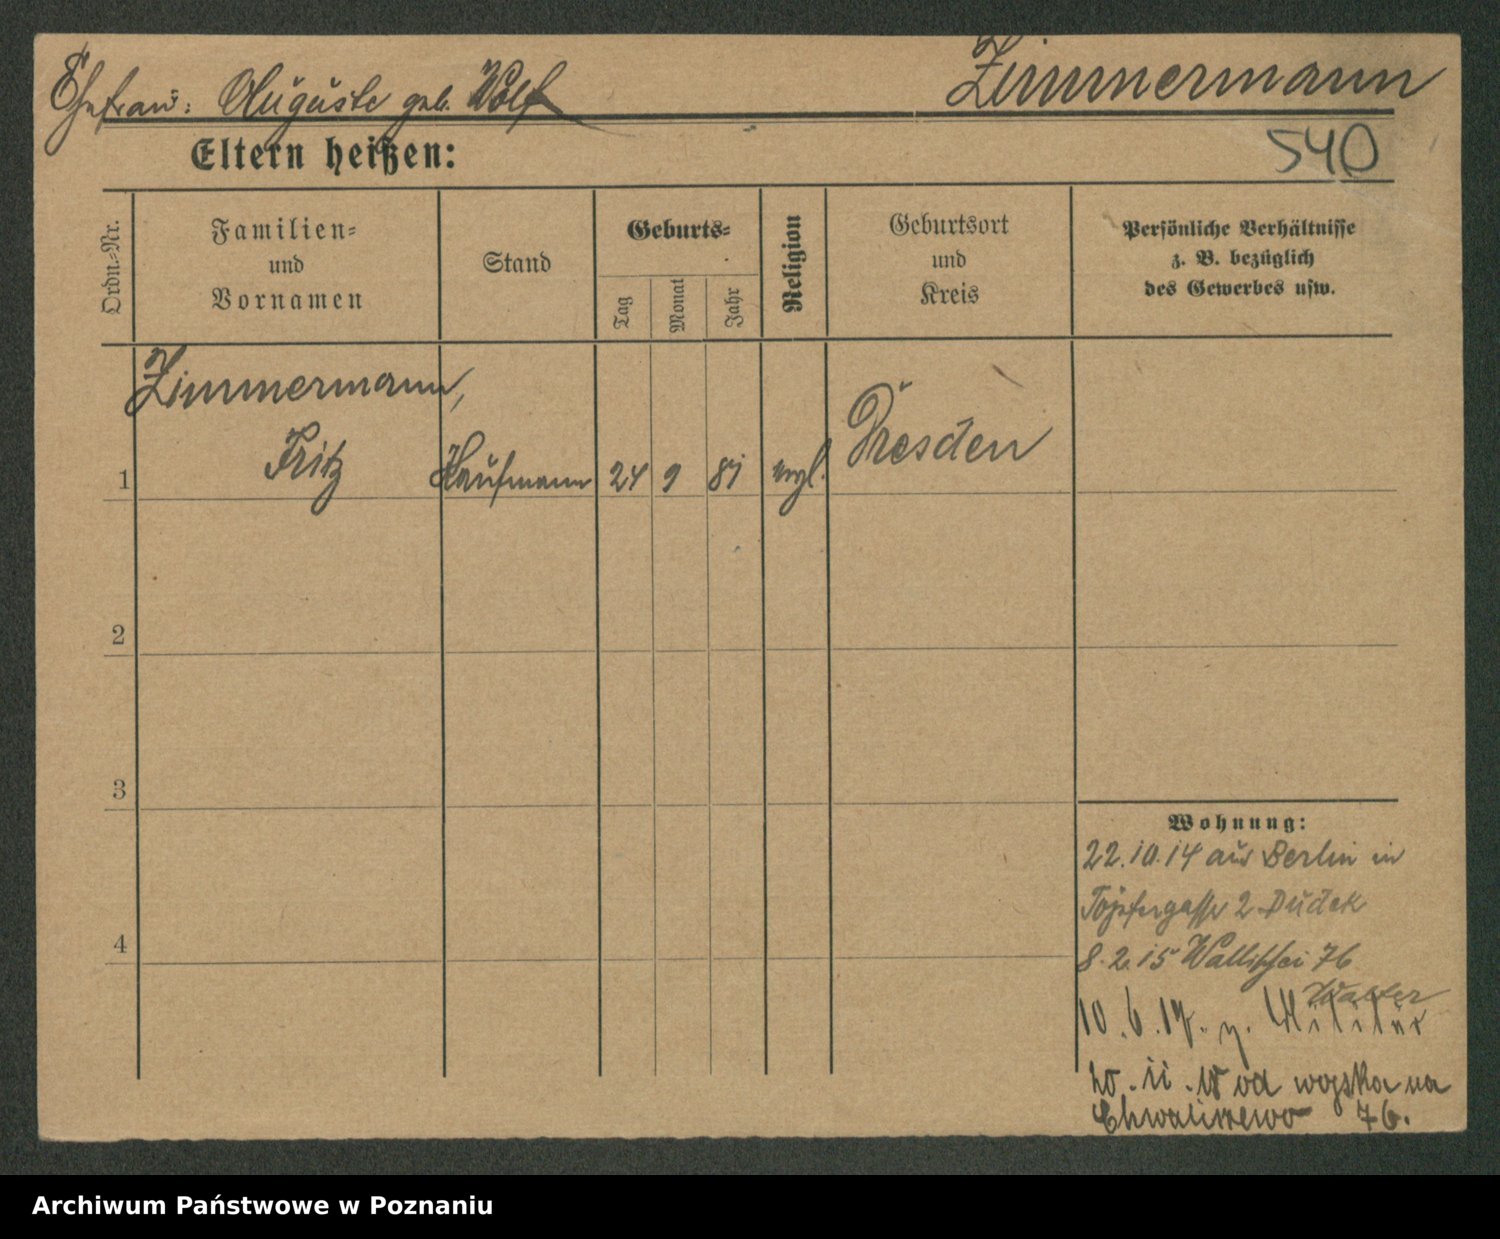 Zimmermann
Ehefrau: Auguste geb. Wolf
540
Eltern heißen:
Ordn.-Nr.
Familien-
und
Vornamen
Stand
Geburts-
Tag
Monat
Jahr
Religion
Geburtsort
und
Kreis
Persönliche Verhältnisse
z. B. bezüglich
des Gewerbes usw.
Zimmermann,
1 Fritz Kaufmann 24 9 81 evgl. Dresden
2
3
4
Wohnung:
22.10.14 aus Berlin in
Töpfergasse 2 Dudek
8.2.15 Wallischei 76
Walter
10.6.17. z. Militär
.11.18 od wojska na
Chwaliszewo 76.
Archiwum Państwowe w Poznaniu